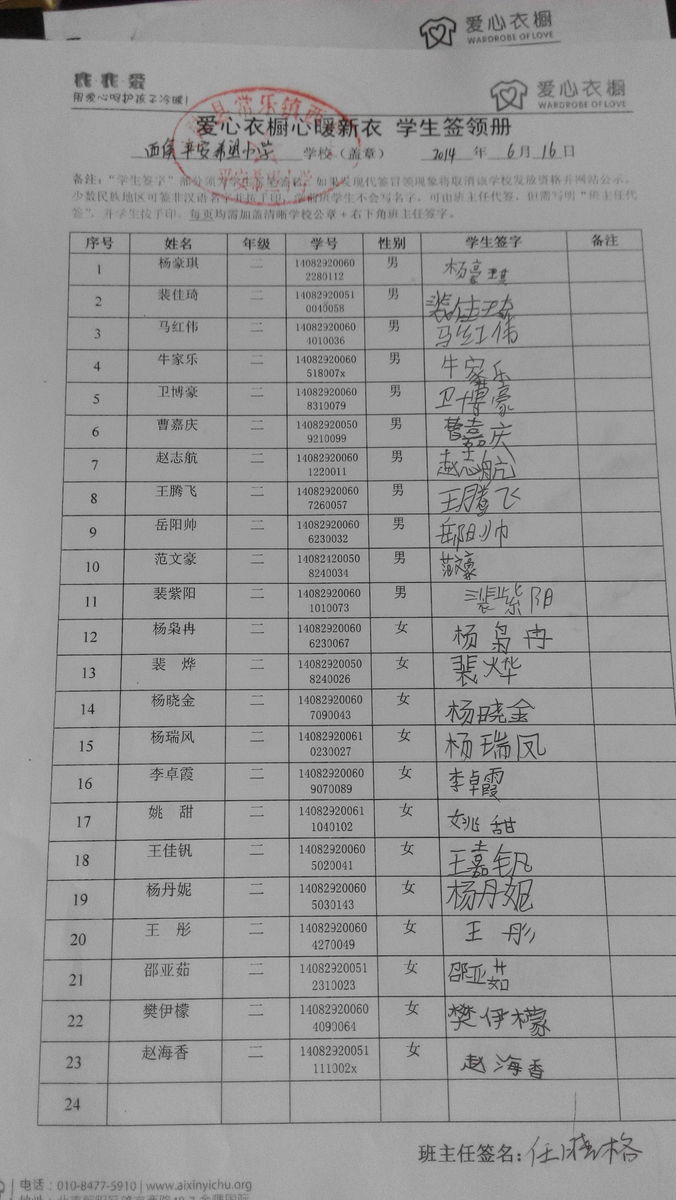 爱心衣橱
WARDROBE OF LOVE
用爱心呵护孩子冷暖!
爱心衣橱
WARDROBE OF LOVE
爱心衣橱心暖新衣 学生签领册
西侯平安希望小学 学校(盖章) 2014 年 6月16日
每页均需加盖清晰学校公章+右下角班主任签字。
序号 姓名 年级 学号 性别 学生签字 备注
1 杨豪琪 二 140829200602280112 男 杨豪琪
2 裴佳琦 二 140829200510040058 男 裴佳琦
3 马红伟 二 140829200604010036 男 马红伟
4 牛家乐 二 14082920060518007x 男 牛家乐
5 卫博豪 二 140829200608310079 男 卫博豪
6 曹嘉庆 二 140829200509210099 男 曹嘉庆
7 赵志航 二 140829200601220011 男 赵志航
8 王腾飞 二 140829200607260057 男 王腾飞
9 岳阳帅 二 140829200606230032 男 岳阳帅
10 范文豪 二 140824200508240034 男 范文豪
11 裴紫阳 二 140829200601010073 男 裴紫阳
12 杨枭冉 二 140829200606230067 女 杨枭冉
13 裴 烨 二 140829200508240026 女 裴烨
14 杨晓金 二 140829200607090043 女 杨晓金
15 杨瑞风 二 140829200610230027 女 杨瑞凤
16 李卓霞 二 140829200609070089 女 李卓霞
17 姚 甜 二 140829200611040102 女 姚甜
18 王佳钒 二 140829200605020041 女 王嘉钒
19 杨丹妮 二 140829200605030143 女 杨丹妮
20 王 彤 二 140829200604270049 女 王 彤
21 邵亚茹 二 140829200512310023 女 邵亚茹
22 樊伊檬 二 140829200604090064 女 樊伊檬
23 赵海香 二 14082920051111002x 女 赵海香
24
班主任签名:任晓格
电话:010-8477-5910 | www.aixinyichu.org